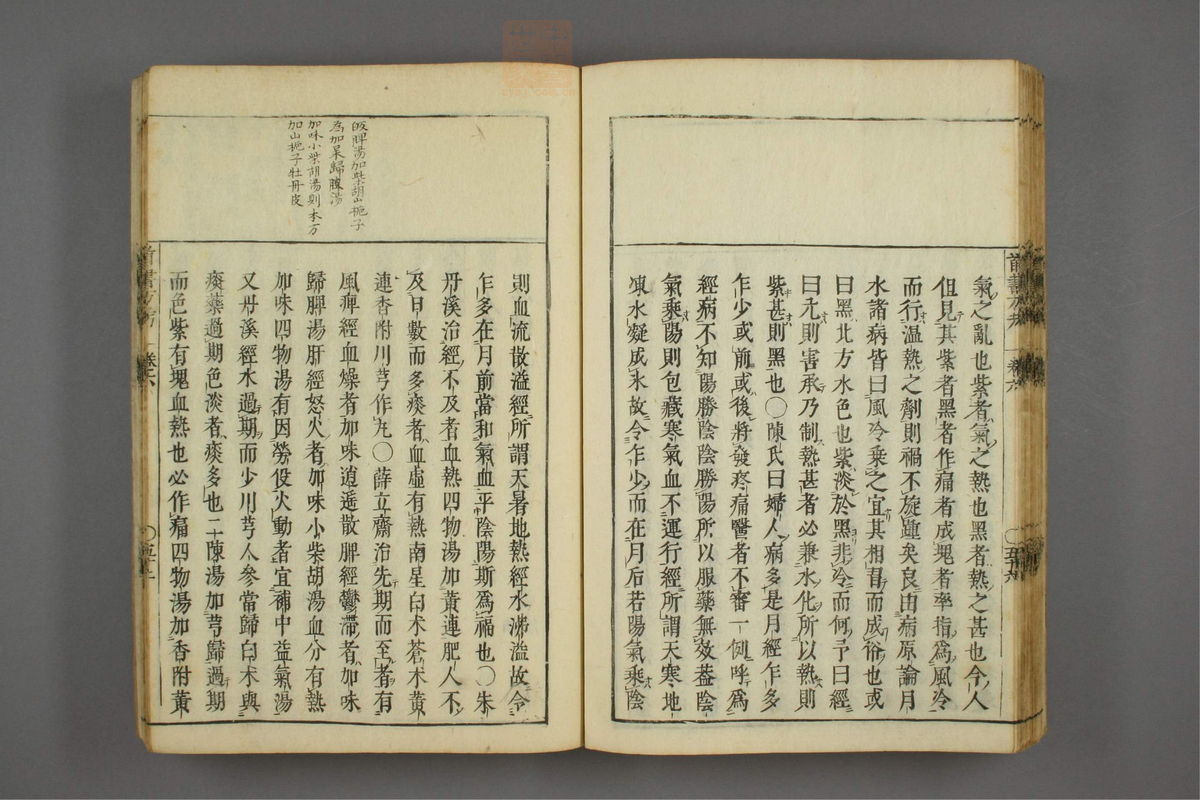 氣之亂也紫者氣之熱也黑者熱之甚也今人
但見其紫者黑者作痛者成塊者率指爲風冷
而行溫熱之劑則禍不旋踵矣良由病原論月
水諸病皆曰風冷乘之宜其相習而成俗也或
曰黑北方水色也紫淡於黑非冷而何予曰經
曰亢則害承乃制熱甚者必兼水化所以熱則
紫甚則黑也○陳氏曰婦人病多是月經乍多
乍少或前或後將發疼痛醫者不審一例呼爲
經病不知陽勝陰陰勝陽所以服藥無效蓋陰
氣乘陽則包藏寒氣血不運行經所謂天寒地
凍水凝成氷故令乍少而在月后若陽氣乘陰
則血流散溢經所謂天暑地熱經水沸溢故令
乍多在月前當和氣血平陰陽斯爲福也○朱
丹溪治經不及者血熱四物湯加黃連肥人不
及日數而多痰者血虛有熱南星白朮蒼朮黃
連香附川芎作丸○薛立齋治先期而至者有
風痺經血燥者加味逍遥散脾經鬱滯者加味
歸脾湯肝經怒火者加味小柴胡湯血分有熱
加味四物湯有因勞役火動者宜補中益氣湯
又丹溪經水過期而少川芎人參當歸白朮與
痰藥過期色淡者痰多也二陳湯加芎歸過期
而色紫有塊血熱也必作痛四物湯加香附黃
皈脾湯加柴胡山梔子
為加味歸脾湯
加味小柴胡湯則本方
加山梔子牡丹皮